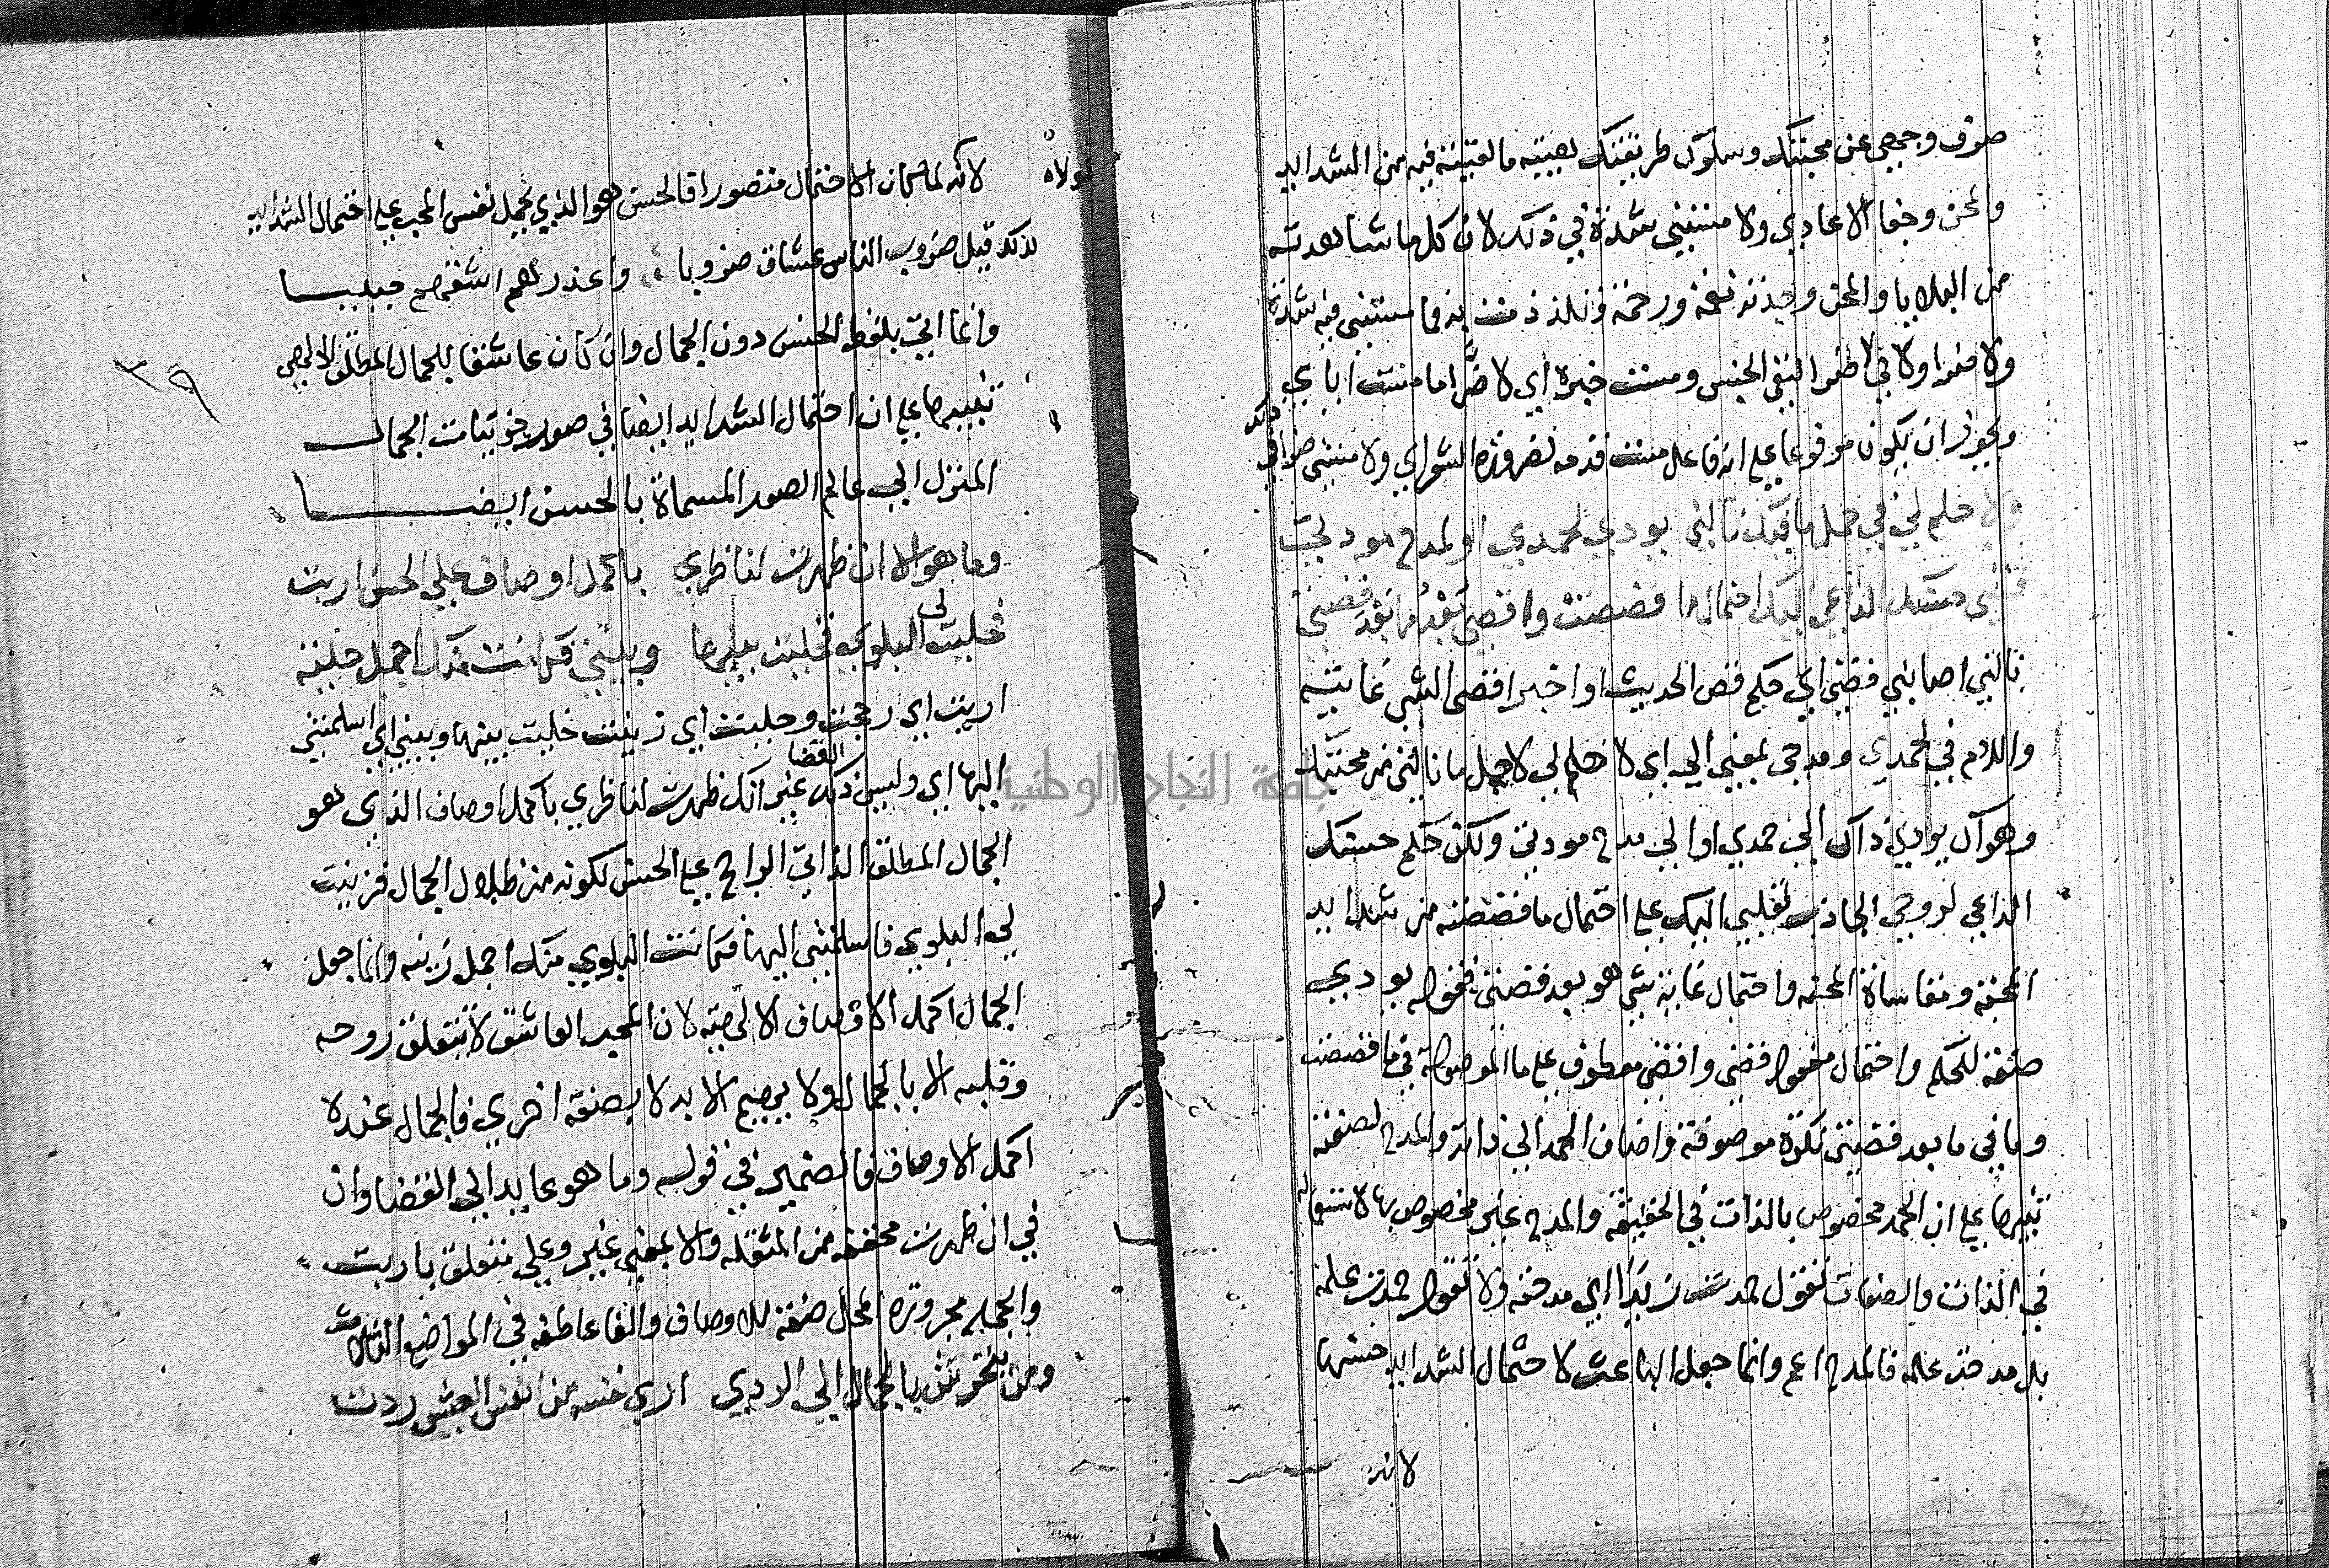 صرف وجهي عن محبتك وسلوك طريقتك بعينيه ما لقيته فيه من الشدايد
والمحن وجفا الاعادي ولا مسني شدة في ذلك لان كل ما شاهدته
من البلايا والمحن وجدته نعمة ورحمة وتلذذت به فما مستني فيه شدة
ولا ضرا ولا في لا ضرا لنفي الجنس ومست خبره اي لا ضرا ما مست اياي
ويجوز ان يكون مرفوعا على انه فاعل مست قدمه لضرورة الشعر اي ولا مستني ضرا في
ذلك
ولا حلم لي في حمل ما فيك نالني يودي لحمدي او لمدح مودتي
قضى حسنك الداعي اليك احتمال ما قصصت واقصى بعد ما بعد قصتي
نالني اصابني قضى اي حكم قص الحديث اذا اخبر اقصى الشي غايته
واللام في لحمدي ومدحي بمعنى الى اي لا حلم لي لاجل ما نالني من محبتك
وهو ان يودي ذاك الى حمدي او الى مدح مودتي ولكن حكم حسنك
الداعي لروحي الجاذب لقلبي اليك على احتمال ما قصصته من شدايد
المحبة ومقاساة المحنة واحتمال غاية شي هو بعد قصتي فقوله يودي
صفة للحلم واحتمال مفعول قضى واقصى معطوف على ما الموصولة في ما قصصت
وما في ما بعد قصتي نكرة موصوفة واضاف الحمد الى ذاته والمدح لصفته
تنبيها على ان الحمد مخصوص بالذات في الحقيقة والمدح غير مخصوص بها لاستعماله
في الذات والصفات تقول حمدت زيدا اي مدحته ولا تقول حمدت علمه
بل مدحت علمه فالمدح اعم وانما جعل الباعث لاحتمال الشدايد حسنها
لانه
لانه لما كان الاحتمال متصورا فالحسن هو الذي يحمل نفس المحب على احتمال الشدايد
لذلك قيل ضروب الناس عشاق ضروبا واعذرهم اشفهم حبيبا
وانما اتى بلفظ الحسن دون الجمال وان كان عاشقا للجمال المطلق الالهي
تنبيها على ان احتمال الشدايد ايضا في صور جزئيات الجمال
المتنزل الى عالم الصور المسماة بالحسن ايضا
٣٩
وما هو الا ان ظهرت لناظري باكمل اوصاف على الحسن اربت
فحليت لي البلوى فخليت بينها وبيني فكانت منك اجمل حلية
اربت اي رجحت وحليت اي زينت خليت بينها وبيني اي اسلمتني
اليها اي وليس ذلك القضا غير انك ظهرت لناظري باكمل اوصاف الذي هو
الجمال المطلق الذاتي الراجح على الحسن لكونه من ظلال الجمال فزينت
لي البلوى فاسلمتني اليها فكانت البلوى منك اجمل زينه وانما جعل
الجمال اكمل الاوصاف الالهية لان المحب العاشق لا تتعلق روحه
وقلبه الا بالجمال ولا يهيم الا به لا بصفة اخرى فالجمال عنده
اكمل الاوصاف فالضمير في قوله وما هو عايد الى القضا وان
في ان ظهرت مخففه من المثقله والا بمعنى غير وعلى متعلق باربت
والجملة مجرورة المحل صفة للاوصاف والفا عاطفه في المواضع الثلاث
ومن يتحرش بالجمال الى الردى ارى نفسه من انفس العيش ردت
جامعة النجاح الوطنية